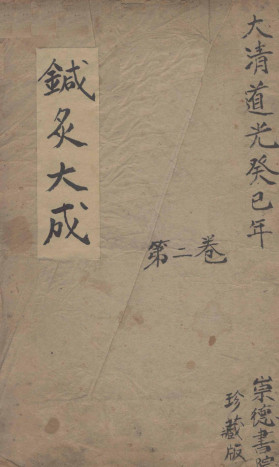 大清道光癸巳年
第二卷
崇德書院
珍藏版
鍼灸大成